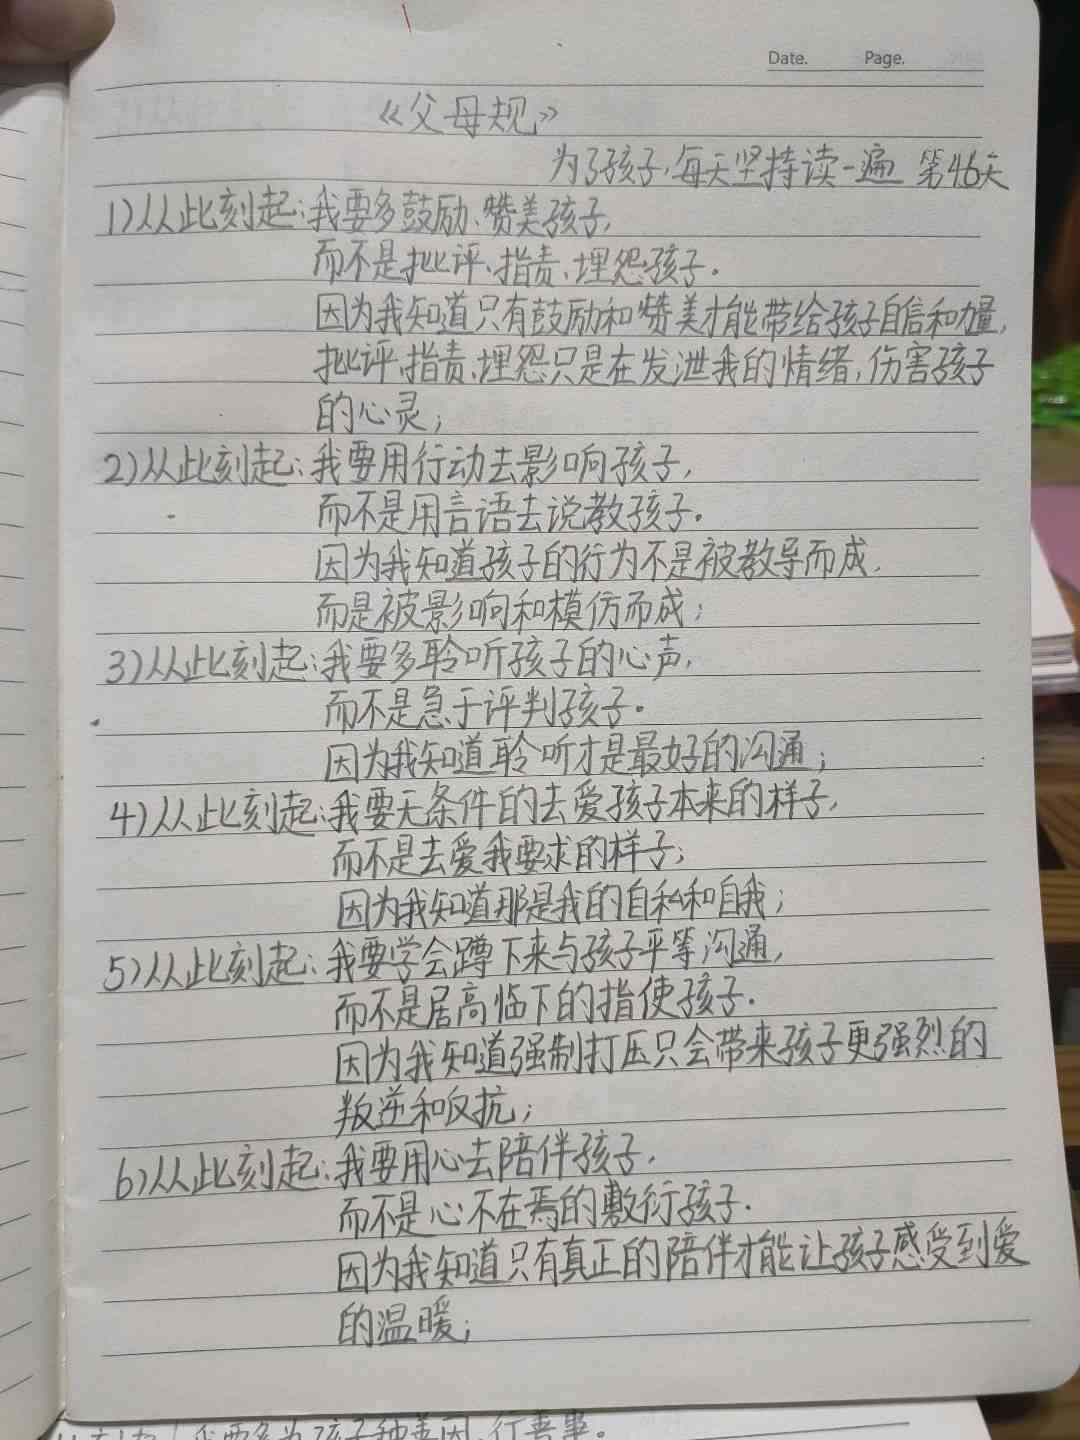 Date. Page.
《父母规》
为了孩子,每天坚持读一遍 第46天
1)从此刻起:我要多鼓励、赞美孩子,
而不是批评、指责、埋怨孩子.
因为我知道只有鼓励和赞美才能带给孩子自信和力量,
批评,指责,埋怨只是在发泄我的情绪,伤害孩子
的心灵;
2)从此刻起:我要用行动去影响孩子,
而不是用言语去说教孩子.
因为我知道孩子的行为不是被教导而成,
而是被影响和模仿而成;
3)从此刻起:我要多聆听孩子的心声,
而不是急于评判孩子.
因为我知道聆听才是最好的沟通;
4)从此刻起:我要无条件的去爱孩子本来的样子,
而不是去爱我要求的样子;
因为我知道那是我的自私和自我;
5)从此刻起:我要学会蹲下来与孩子平等沟通,
而不是居高临下的指使孩子.
因为我知道强制打压只会带来孩子更强烈的
叛逆和反抗;
6)从此刻起:我要用心去陪伴孩子,
而不是心不在焉的敷衍孩子.
因为我知道只有真正的陪伴才能让孩子感受到爱
的温暖;
我要多为孩子种善因、行善事。